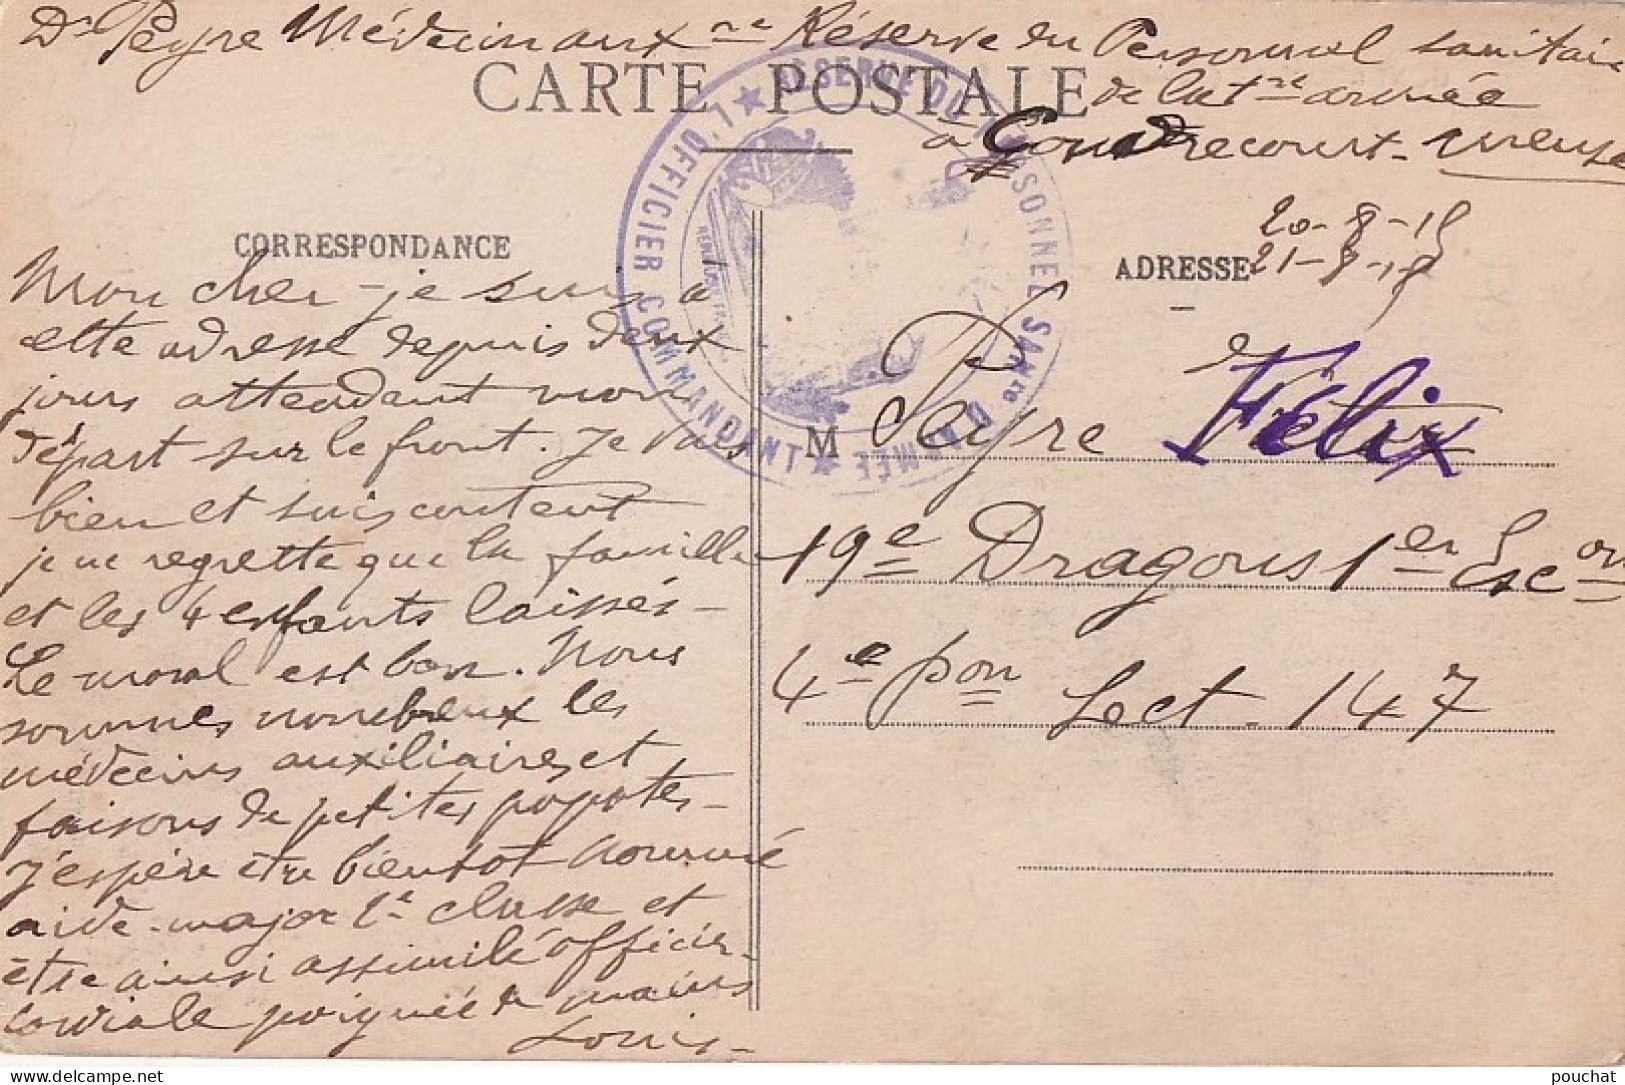 Dr Peyre Médecin auxre Réserve du Personnel sanitaire
de la 1re armée
à Gondrecourt - Meuse
CARTE POSTALE
L'OFFICIER COMMANDANT ★ RÉSERVE DU PERSONNEL SANre D'ARMÉE ★
CORRESPONDANCE
ADRESSE
20-8-15
21-8-15
Mon cher - je suis à
cette adresse depuis deux
jours attendant mon
départ sur le front. Je vais
bien et suis content
je ne regrette que la famille
et les 4 enfants laissés -
Le moral est bon. Nous
sommes nombreux les
médecins auxiliaires et
faisons de petites popotes -
J'espère être bientôt nommé
aide-major 2e classe et
être ainsi assimilé officier -
Cordiale poignée de mains
Louis -
M Peyre Félix
19e Dragons 1er Escon
4e pon Sect. 147
pouchat